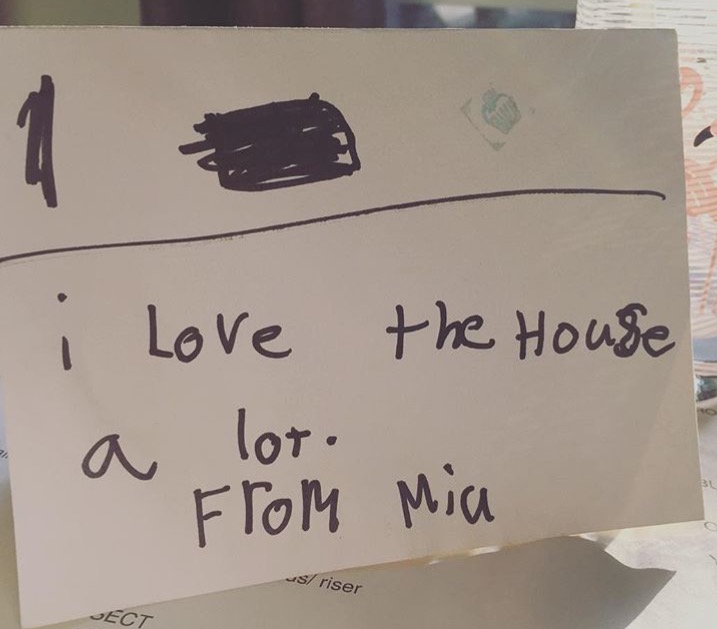 i Love the House
a lot.
From Mia
us/ riser
SECT